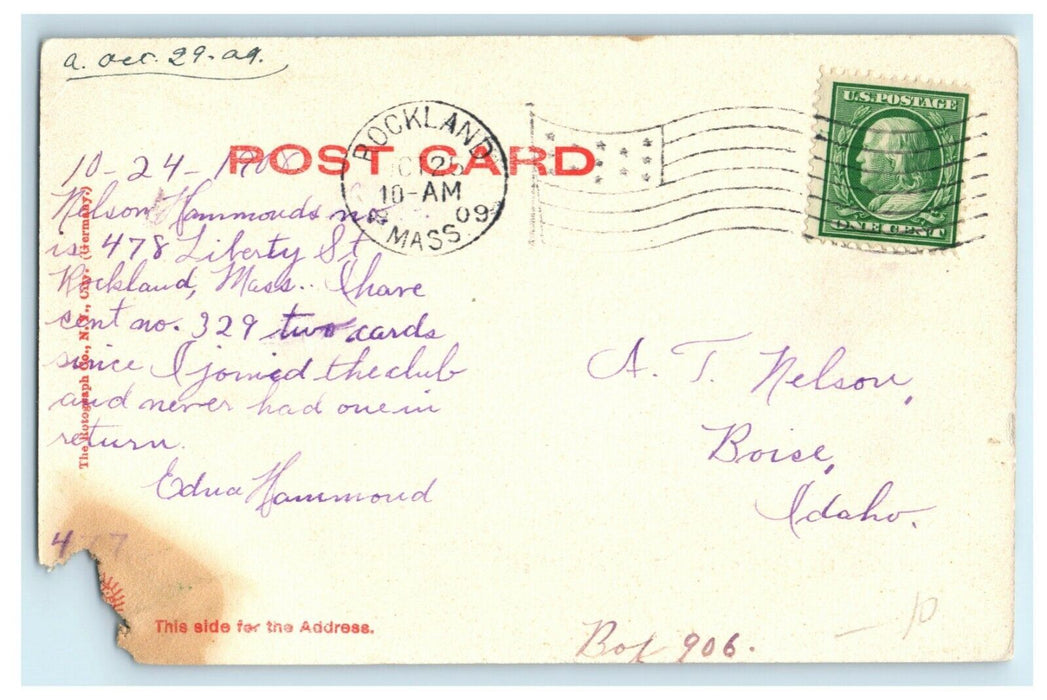 a. Oct. 29-09.
POST CARD
ROCKLAND
OCT 25
10-AM
09
MASS.
U.S. POSTAGE
ONE CENT
10-24-190
Nelson Hammonds no
is 478 Liberty St
Rockland, Mass.. I have
sent no. 329 two cards
since I joined the club
and never had one in
return.
Edna Hammond
The Rotograph Co., N.Y., City. (Germany.)
A. T. Nelson,
Boise,
Idaho.
This side for the Address.
Box 906.